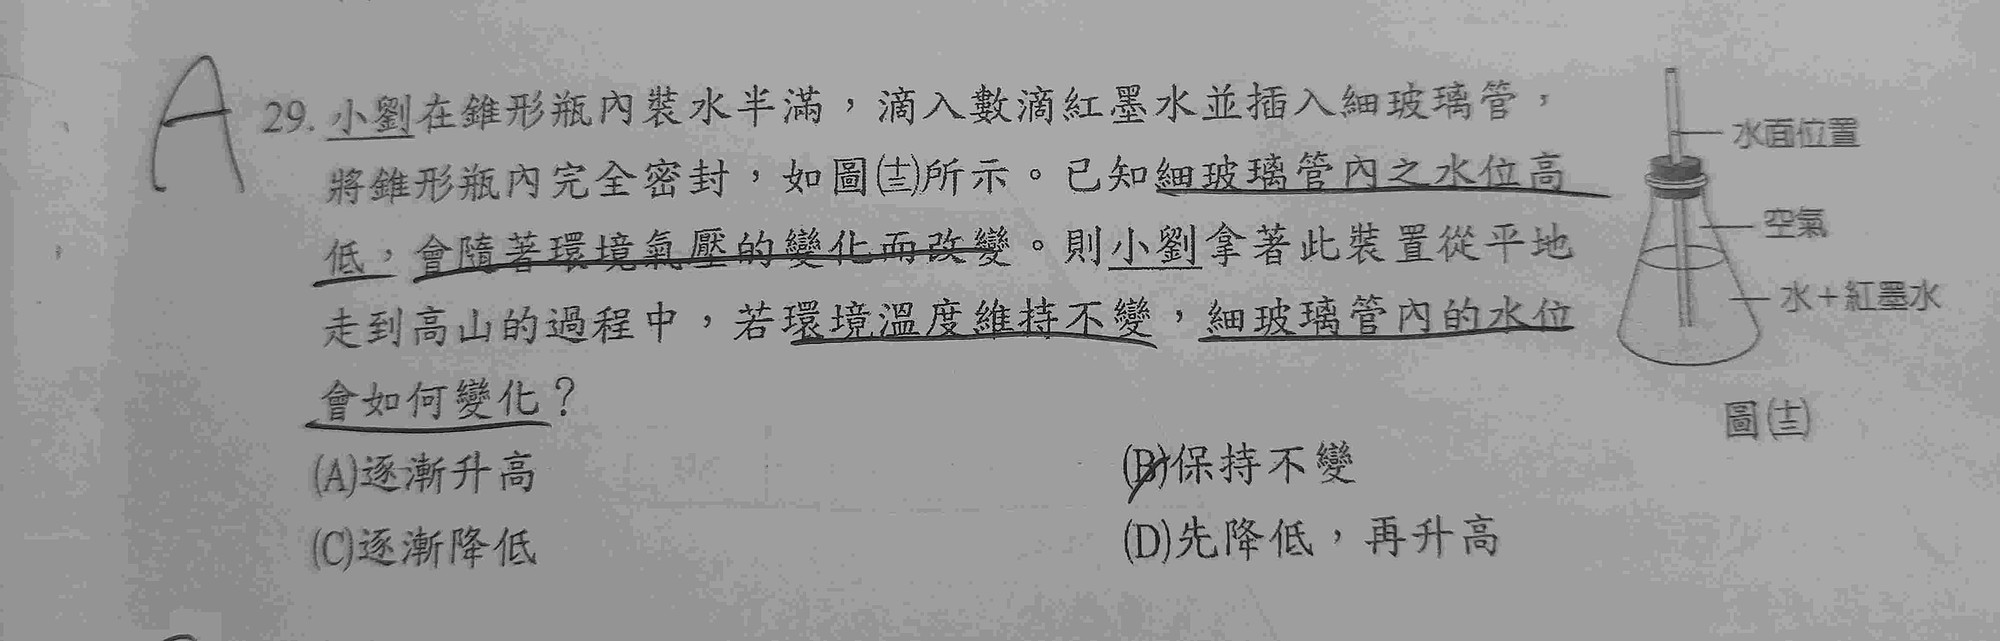 A
29. 小劉在錐形瓶內裝水半滿，滴入數滴紅墨水並插入細玻璃管，
將錐形瓶內完全密封，如圖(十三)所示。已知細玻璃管內之水位高
低，會隨著環境氣壓的變化而改變。則小劉拿著此裝置從平地
走到高山的過程中，若環境溫度維持不變，細玻璃管內的水位
會如何變化？
(A)逐漸升高
(B)保持不變
(C)逐漸降低
(D)先降低，再升高
水面位置
空氣
水＋紅墨水
圖(十三)